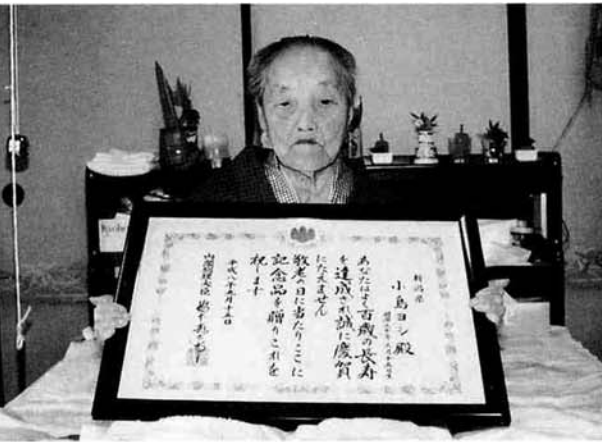 新潟県
小島ヨシ殿
あなたはよく百歳の長寿
を達成され誠に慶賀
にたえません
敬老の日に当たりここに
記念品を贈りこれを
祝します
平成八年九月十五日
内閣総理大臣 橋本龍太郎